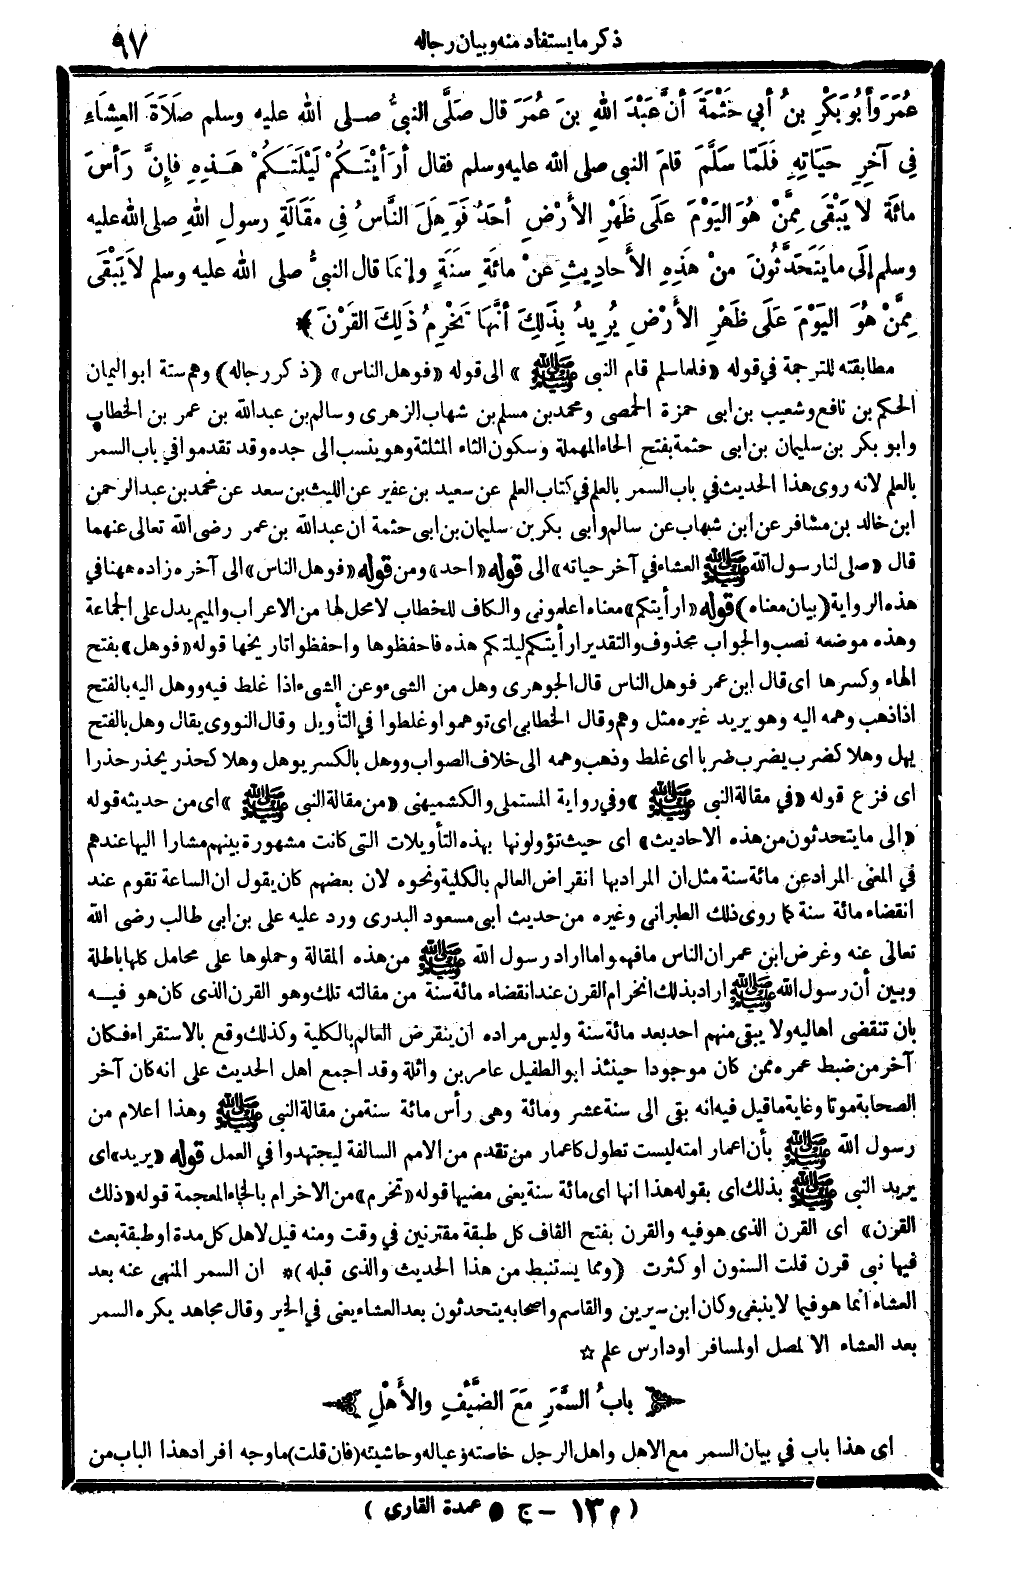 ذكر ما يستفاد منه وبيان رجاله
٩٧
عُمَرَ وَأبُو بَكْرِ بنُ أبي حَثْمَةَ أنَّ عَبْدَ اللهِ بنَ عُمَرَ قال صَلَّى النبيُّ صلى الله عليه وسلم صَلَاةَ العِشَاءِ
فِي آخِرِ حَيَاتِهِ فَلَمَّا سَلَّمَ قامَ النبي صلى الله عليه وسلم فقال أرَأيْتَكُمْ لَيْلَتَكُمْ هَذِهِ فإِنَّ رَأسَ
مائَةَ لا يَبْقَى مِمَّنْ هُوَ اليَوْمَ عَلَى ظَهْرِ الأرْضِ أحَدٌ فَوَهِلَ النَّاسُ فِي مَقَالَةِ رسولِ اللهِ صلى الله عليه
وسلم إلَى ما يَتَحَدَّثُونَ منْ هَذِهِ الأحادِيثِ عَنْ مائَةِ سَنَةٍ وإنما قال النبيُّ صلى الله عليه وسلم لا يَبْقَى
مِمَّنْ هُوَ اليَوْمَ عَلَى ظَهْرِ الأرْضِ يُرِيدُ بِذَلِكَ أنَّهَا تَخْرِمُ ذَلِكَ القَرْنَ *
مطابقته للترجمة في قوله «فلما سلم قام النبي ﷺ» الى قوله «فوهل الناس» (ذكر رجاله) وهم ستة ابو اليمان
الحكم بن نافع وشعيب بن ابى حمزة الحمصى ومحمد بن مسلم بن شهاب الزهرى وسالم بن عبد الله بن عمر بن الخطاب
وابو بكر بن سليمان بن ابى حثمة بفتح الحاء المهملة وسكون الثاء المثلثة وهو ينسب الى جده وقد تقدموا في باب السمر
بالعلم لانه روى هذا الحديث في باب السمر بالعلم في كتاب العلم عن سعيد بن عفير عن الليث بن سعد عن محمد بن عبد الرحمن
ابن خالد بن مسافر عن ابن شهاب عن سالم وأبى بكر بن سليمان بن ابى حثمة ان عبد الله بن عمر رضى الله تعالى عنهما
قال «صلى لنا رسول الله ﷺ العشاء في آخر حياته» الى قوله «احد» ومن قوله «فوهل الناس» الى آخره زاده ههنا في
هذه الرواية (بيان معناه) قوله «ارأيتكم» معناه اعلمونى والكاف للخطاب لا محل لها من الاعراب والميم يدل على الجماعة
وهذه موضعه نصب والجواب محذوف والتقدير ارأيتكم ليلتكم هذه فاحفظوها واحفظوا تاريخها قوله «فوهل» بفتح
الهاء وكسرها اى قال ابن عمر فوهل الناس قال الجوهرى وهل من الشىء وعن الشىء اذا غلط فيه ووهل اليه بالفتح
اذا ذهب وهمه اليه وهو يريد غيره مثل وهم وقال الخطابى اى توهموا وغلطوا في التأويل وقال النووى يقال وهل بالفتح
يهل وهلا كضرب يضرب ضربا اى غلط وذهب وهمه الى خلاف الصواب ووهل بالكسر يوهل وهلا كحذر يحذر حذرا
اى فزع قوله «في مقالة النبى ﷺ» وفي رواية المستملى والكشميهنى «من مقالة النبى ﷺ» اى من حديثه قوله
«الى ما يتحدثون من هذه الاحاديث» اى حيث تؤولونها بهذه التأويلات التى كانت مشهورة بينهم مشارا اليها عندهم
في المعنى المراد عن مائة سنة مثل ان المراد بها انقراض العالم بالكلية ونحوه لان بعضهم كان يقول ان الساعة تقوم عند
انقضاء مائة سنة كما روى ذلك الطبرانى وغيره من حديث ابى مسعود البدرى ورد عليه على بن ابى طالب رضى الله
تعالى عنه وغرض ابن عمر ان الناس ما فهموا ما اراد رسول الله ﷺ من هذه المقالة وحملوها على محامل كلها باطلة
وبين أن رسول الله ﷺ اراد بذلك انخرام القرن عند انقضاء مائة سنة من مقالته تلك وهو القرن الذى كان هو فيه
بان تنقضى اهاليه ولا يبقى منهم احد بعد مائة سنة وليس مراده ان ينقرض العالم بالكلية وكذلك وقع بالاستقراء فكان
آخر من ضبط عمره ممن كان موجودا حينئذ ابو الطفيل عامر بن واثلة وقد اجمع اهل الحديث على انه كان آخر
الصحابة موتا وغاية ما قيل فيه انه بقى الى سنة عشر ومائة وهى رأس مائة سنة من مقالة النبى ﷺ وهذا اعلام من
رسول الله ﷺ بأن اعمار امته ليست تطول كاعمار من تقدم من الامم السالفة ليجتهدوا في العمل قوله «يريد» اى
يريد النبى ﷺ بذلك اى بقوله هذا انها اى مائة سنة يعنى مضيها قوله «تخرم» من الاخرام بالخاء المعجمة قوله «ذلك
القرن» اى القرن الذى هو فيه والقرن بفتح القاف كل طبقة مقترنين في وقت ومنه قيل لاهل كل مدة او طبقة بعث
فيها نبى قرن قلت السنون او كثرت (ومما يستنبط من هذا الحديث والذى قبله)* ان السمر المنهى عنه بعد
العشاء انما هو فيما لا ينبغى وكان ابن سيرين والقاسم واصحابه يتحدثون بعد العشاء يعنى في الخير وقال مجاهد يكره السمر
بعد العشاء الا لمصل او لمسافر او دارس علم ☆
بابُ السَّمَرِ مَعَ الضَّيْفِ والأَهْلِ
اى هذا باب في بيان السمر مع الاهل واهل الرجل خاصته وعياله وحاشيته (فان قلت) ما وجه افراد هذا الباب من
(م ١٣ – ج ٥ عمدة القارى)